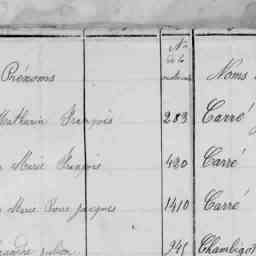 Prénoms Nº de la matricule Noms
Mathurin François 283 Carré
Marie François 420 Carré
Marie Rose Jacques 1410 Carré
Julien 945 Chambigot